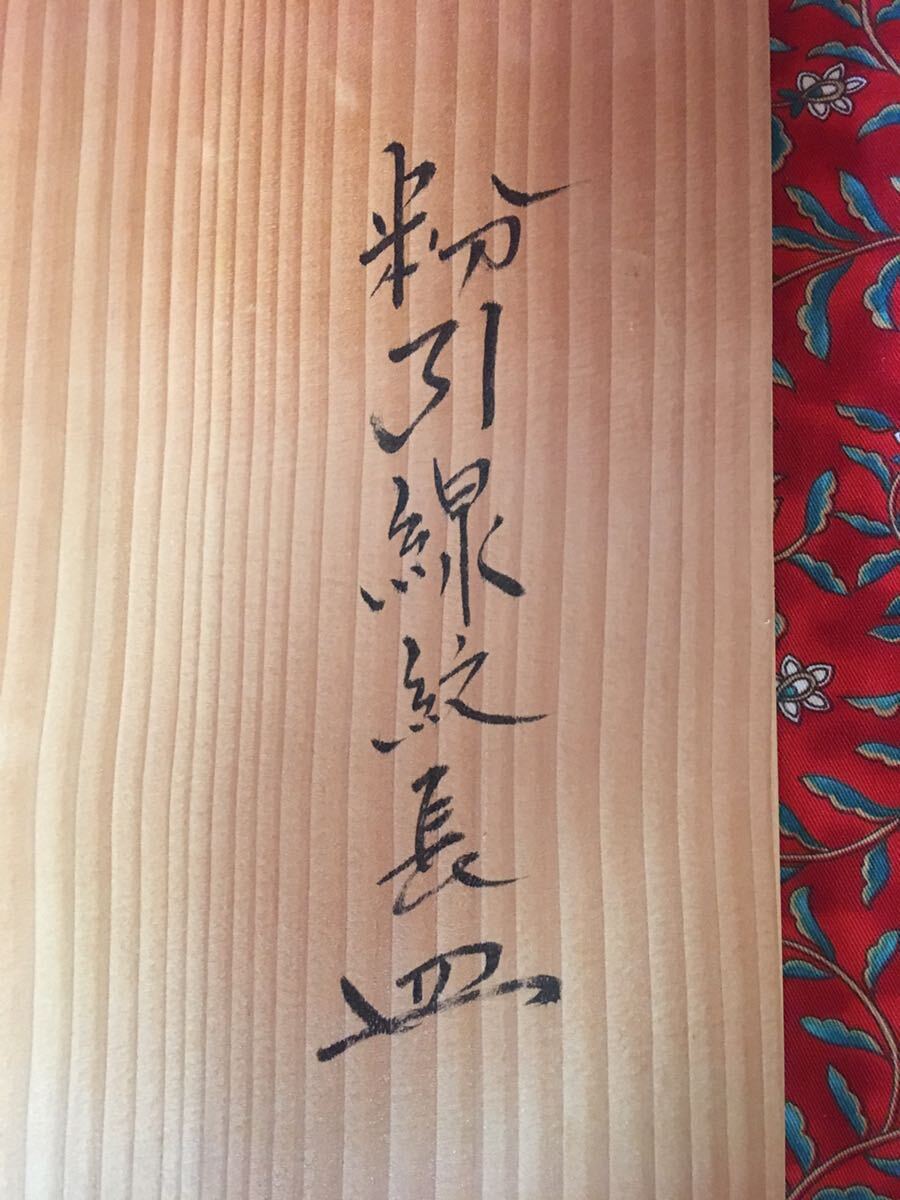 粉引線紋長皿